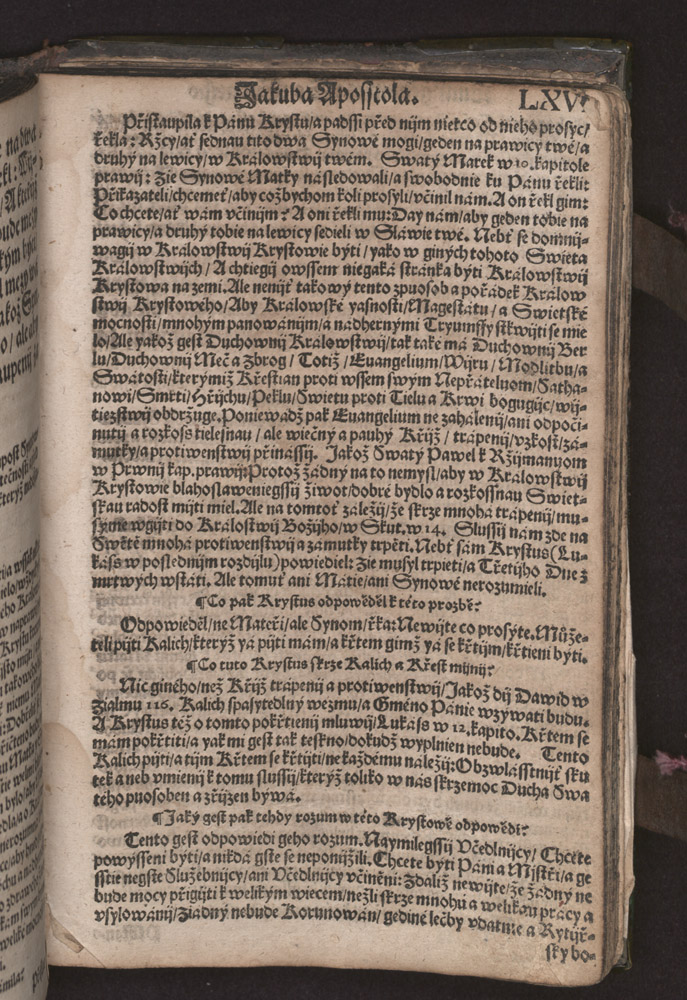 Jakuba Aposstola. LXV
Přistaupila k Pánu Krystu/a padssi před nijm niekco od nieho prosyc/
řekla: Ržcy/ať sednau tito dwa Synowé mogi/geden na prawicy twé/a
druhý na lewicy/w Králowstwij twém. Swatý Marek w 10. kapitole
prawij: Zie Synowé Matky následowali/a swobodnie ku Pánu řekli:
Přikazateli/chcemeť/aby cožbychom koli prosyli/včinil nám. A on řekl gim:
Co chcete/ať wám včinijm? A oni řekli mu: Day nám/aby geden tobie na
prawicy/a druhý tobie na lewicy sedieli w Sláwie twé. Nebť se domnij-
wagij w Králowstwij Krystowie býti/yako w giných tohoto Swieta
Králowstwijch/A chtiegij owssem niegaká stránka býti Králowstwij
Krystowa na zemi. Ale nenijť takowý tento zpuosob a pořádek Králow
stwij Krystowého/Aby Králowské yasnosti/Magestátu/a Swietské
mocnosti/mnohým panowánijm/a nádhernými Tryumffy skwijti se mie
lo/Ale yakož gest Duchownij Králowstwij/tak také má Duchownij Ber
lu/Duchownij Meč a Zbrog/Totiž/Euangelium/Wijru/Modlitbu/a
Swátosti/kterýmiž Křestian proti wssem swým Nepřáteluom/Satha-
nowi/Smrti/Hřijchu/Peklu/Swietu proti Tielu a Krwi bogugijc/wij-
tiezstwij obdržuge. Poniewadž pak Euangelium ne zahálenij/ani odpoči-
nutij a rozkoss tielesnau/ale wiečný a pauhý Křijž/trápenij/vzkost/zá-
mutky/a protiwenstwij přinássij. Jakož Swatý Pawel k Ržijmanuom
w Prwnij kap. prawij: Protož žádný na to nemysl/aby w Králowstwij
Krystowie blahoslaweniegssij žiwot/dobré bydlo a rozkossnau Swiet-
skau radost mijti miel. Ale na tomtoť záležij/že skrze mnohá trápenij/mu-
syme wgijti do Králostwij Božijho/w Skut. w 14. Slussij nám zde na
Swětě mnohá protiwenstwij a zámutky trpěti. Nebť sám Krystus (Lu-
káss w poslednijm rozdijlu) powiediel: Zie musyl trpieti/a Třetijho Dne z
mrtwých wstáti. Ale tomuť ani Mátie/ani Synowé nerozumieli.
¶ Co pak Krystus odpowěděl k této prozbě?
Odpowieděl/ne Mateři/ale Synom/řka: Newijte co prosyte. Může-
teli pijti Kalich/kterýž yá pijti mám/a křtem gimž yá se křtijm/křtieni býti.
¶ Co tuto Krystus skrze Kalich a Křest mijnij?
Nic giného/než Křijž trápenij a protiwenstwij/Jakož dij Dawid w
Zialmu 116. Kalich spasytedlný wezmu/a Gméno Pánie wzýwati budu.
A Krystus též o tomto pokřtienij mluwij/Lukáss w 12. kapito. Křtem se
mám pokřtiti/a yak mi gest tak teskno/dokudž wyplnien nebude. Tento
Kalich pijti/a tijm Křtem se křtijti/ne každému náležij: Obzwlásstnijť sku
tek a neb vmienij k tomu slussij/kterýž toliko w nás skrze moc Ducha Swa
tého puosoben a zřijzen býwá.
¶ Jaký gest pak tehdy rozum w této Krystowě odpowědi?
Tento gest odpowiedi geho rozum. Naymilegssij Včedlnijcy/Chcete
powysseni býti/a nikda gste se neponijžili. Chcete býti Páni a Mistři/a ge
sstie negste Služebnijcy/ani Včedlnijcy včiněni: Zdaliž newijte/že žádný ne
bude mocy přigijti k welikým wiecem/nežli skrze mnohú a welikau prácy a
vsylowánij/žiadný nebude Korunowán/gediné lečby vdatnie a Rytijř-
sky bo-